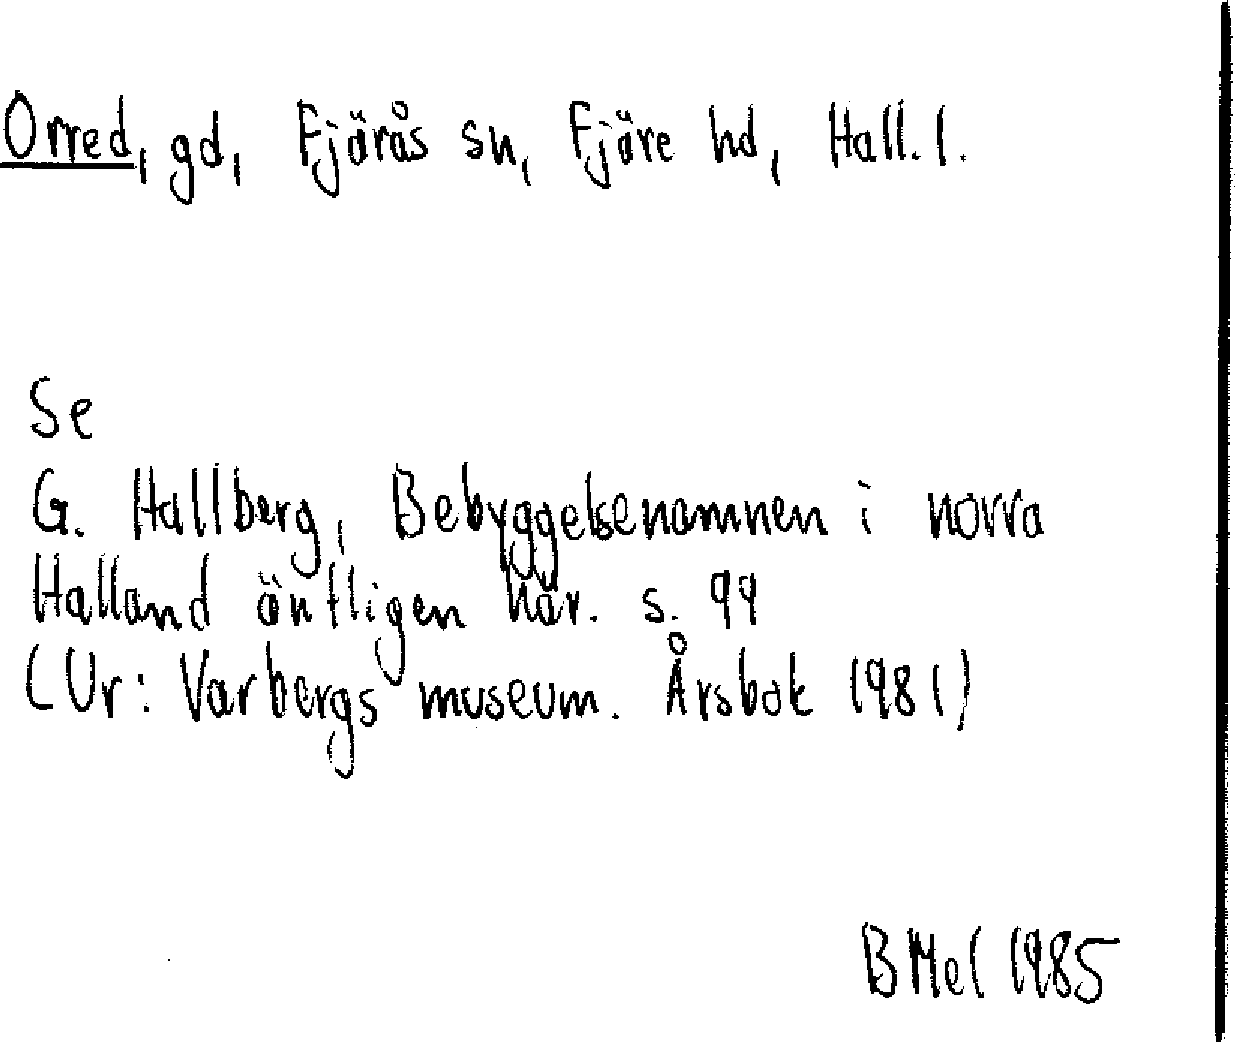 Orred, gd, Fjärås sn, Fjäre hd, Hall. l.
Se
G. Hallberg, Bebyggelsenamnen i norra
Halland äntligen här. s. 99
(Ur: Varbergs museum. Årsbok 1981)
BMel 1985